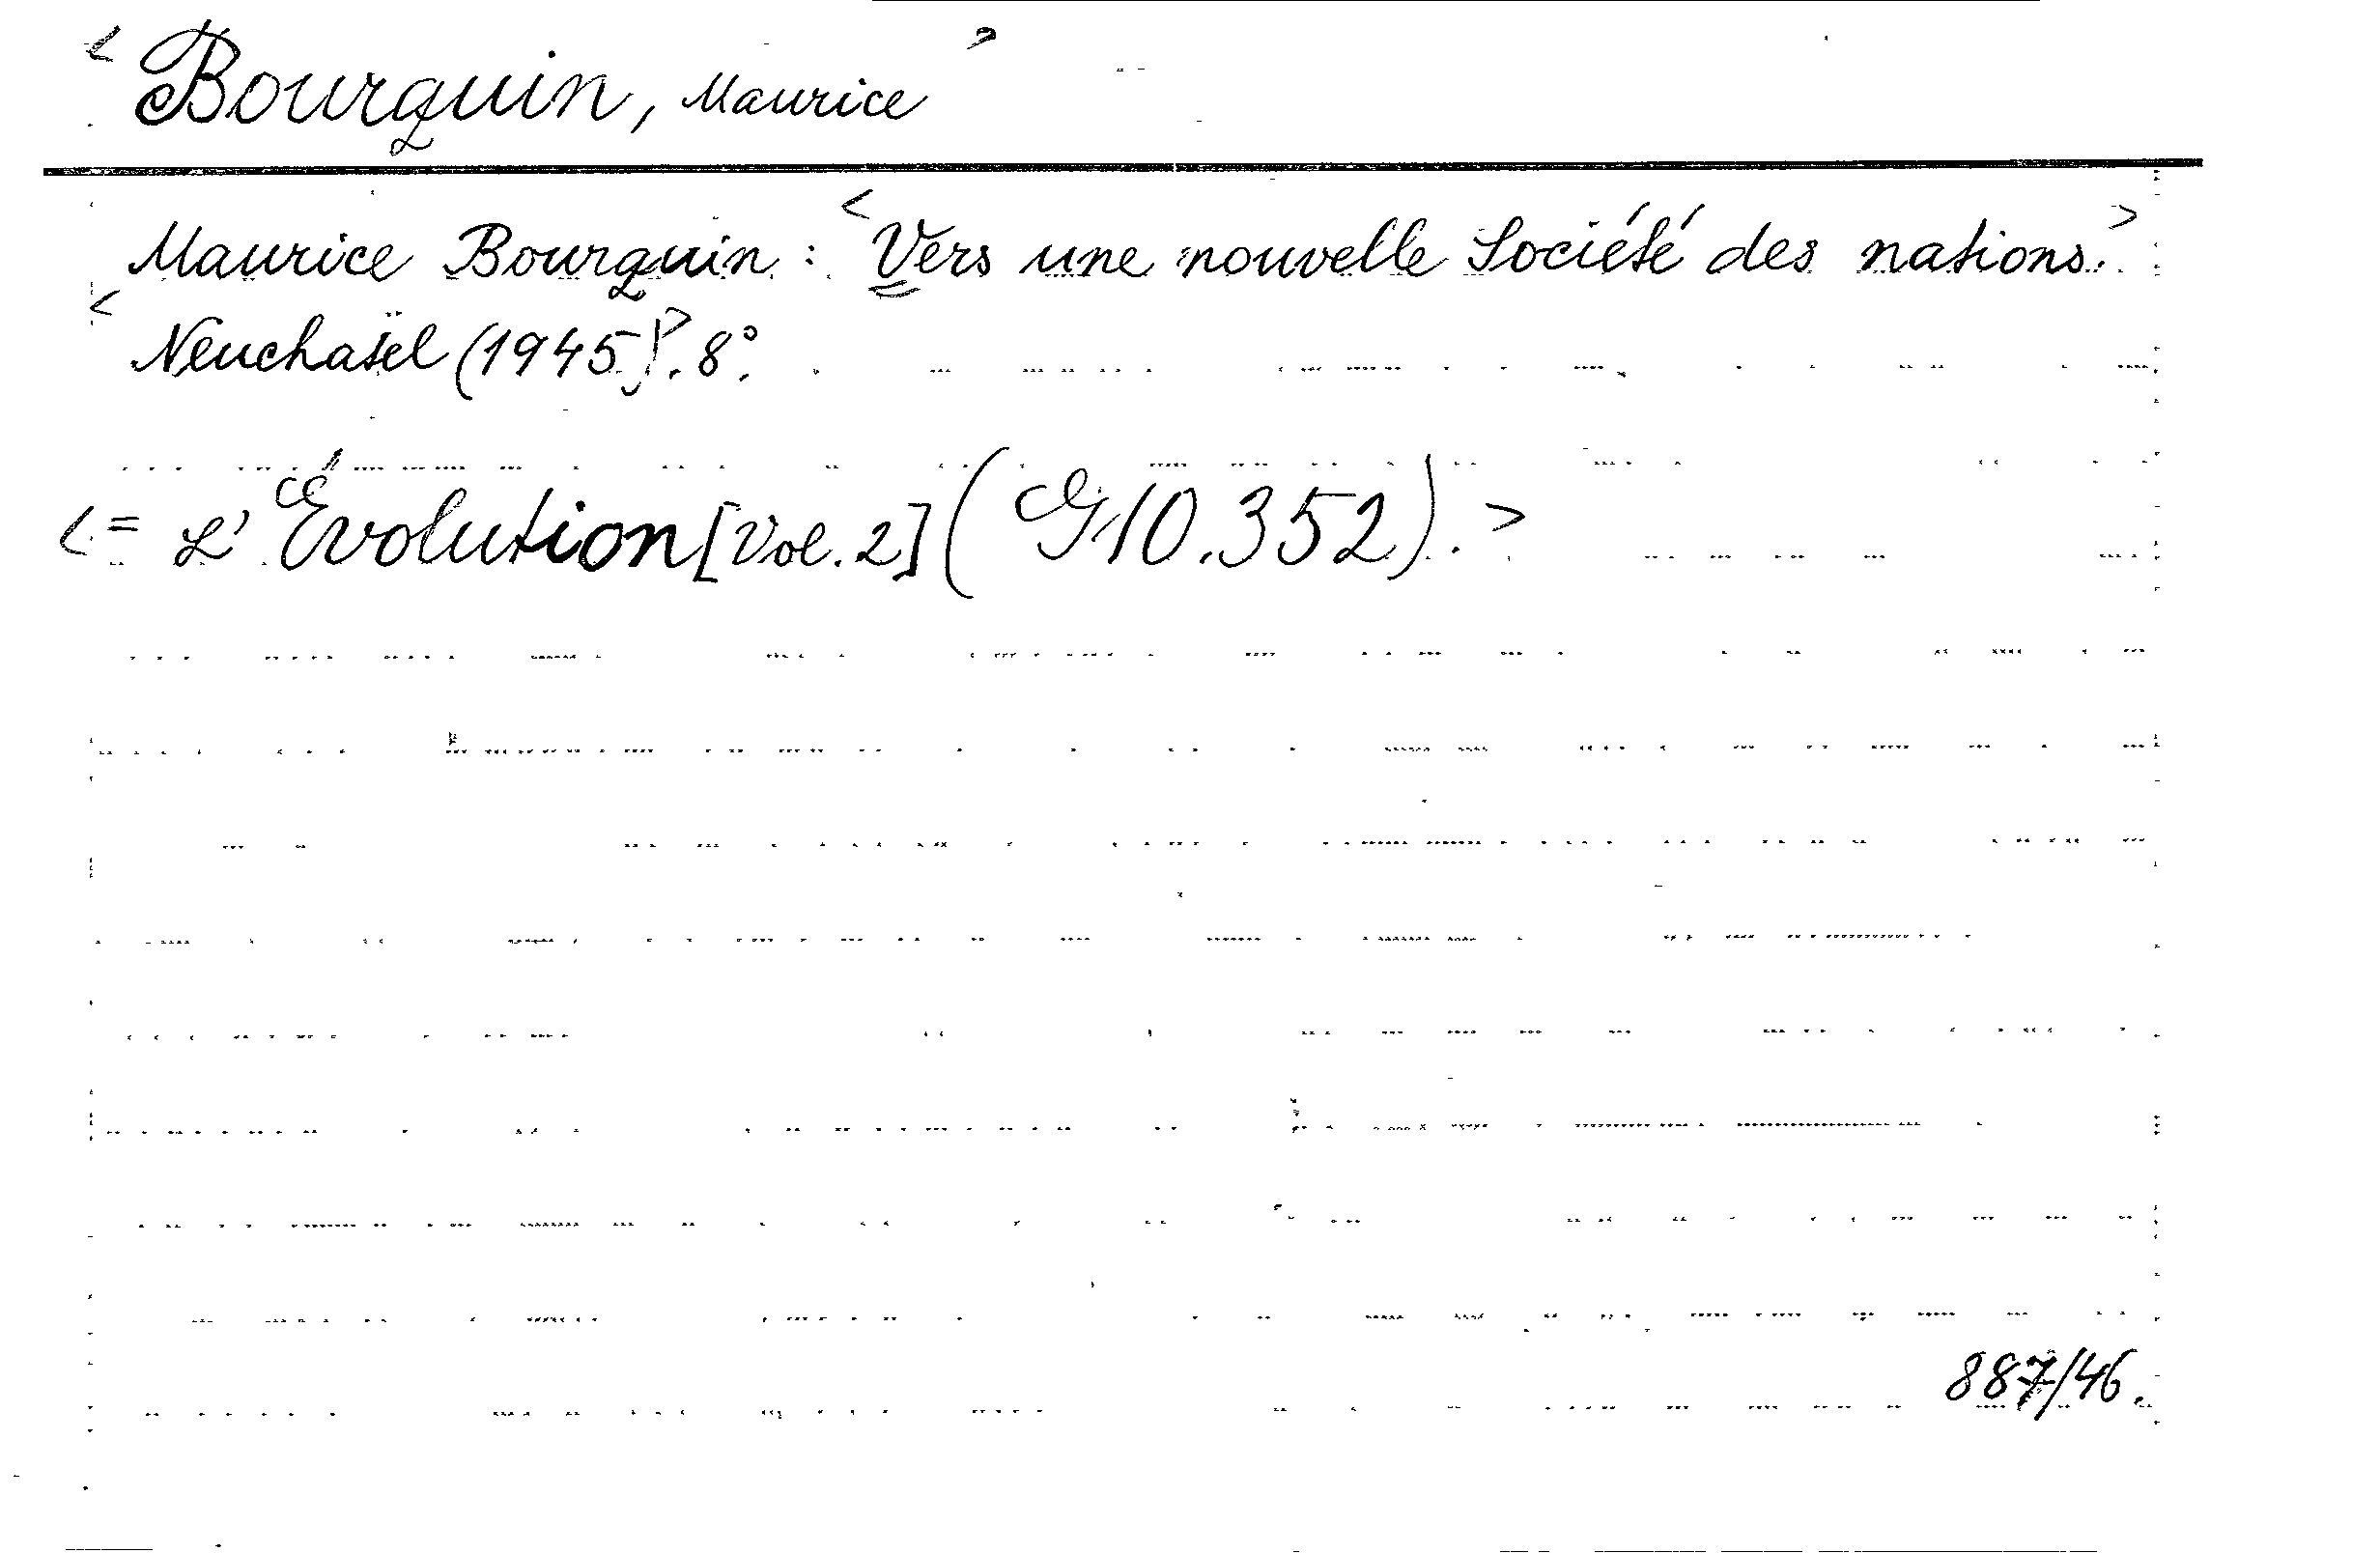 < Bourquin, Maurice >
Maurice Bourquin: < Vers une nouvelle Société des nations. >
< Neuchatel (1945) >. 8°.
< = L'Évolution [Vol. 2] (G 10.352). >
887/46.